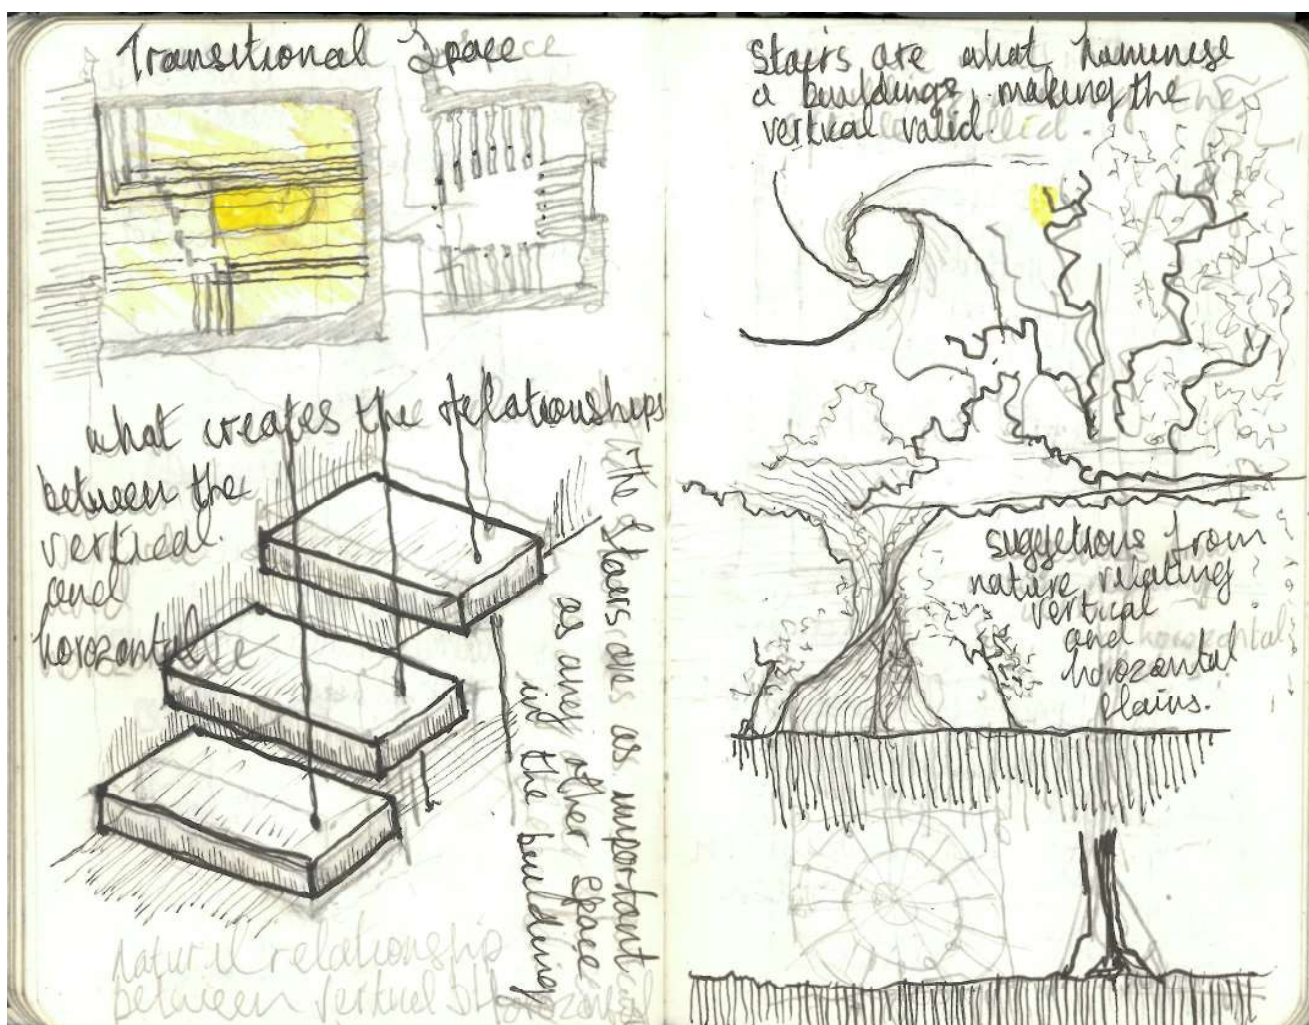 Transitional Space
what creates the relationships
between the
vertical
and
horozontal
the Stairs are as important
as any other space
in the building
natural relationship
between vertical & horozontal
Stairs are what humenise
a buildings, making the
vertical valid.
suggetions from
nature relating
vertical
and
horozontal
plains.